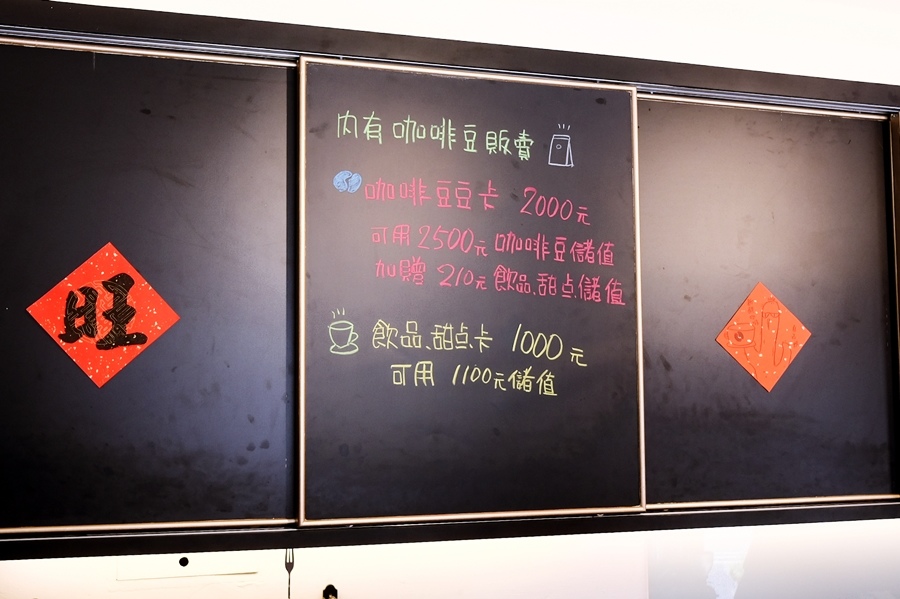 旺
內有咖啡豆販賣
咖啡豆豆卡 2000元
可用2500元咖啡豆儲值
加贈 210元飲品、甜点、儲值
飲品、甜点、卡 1000元
可用 1100元儲值